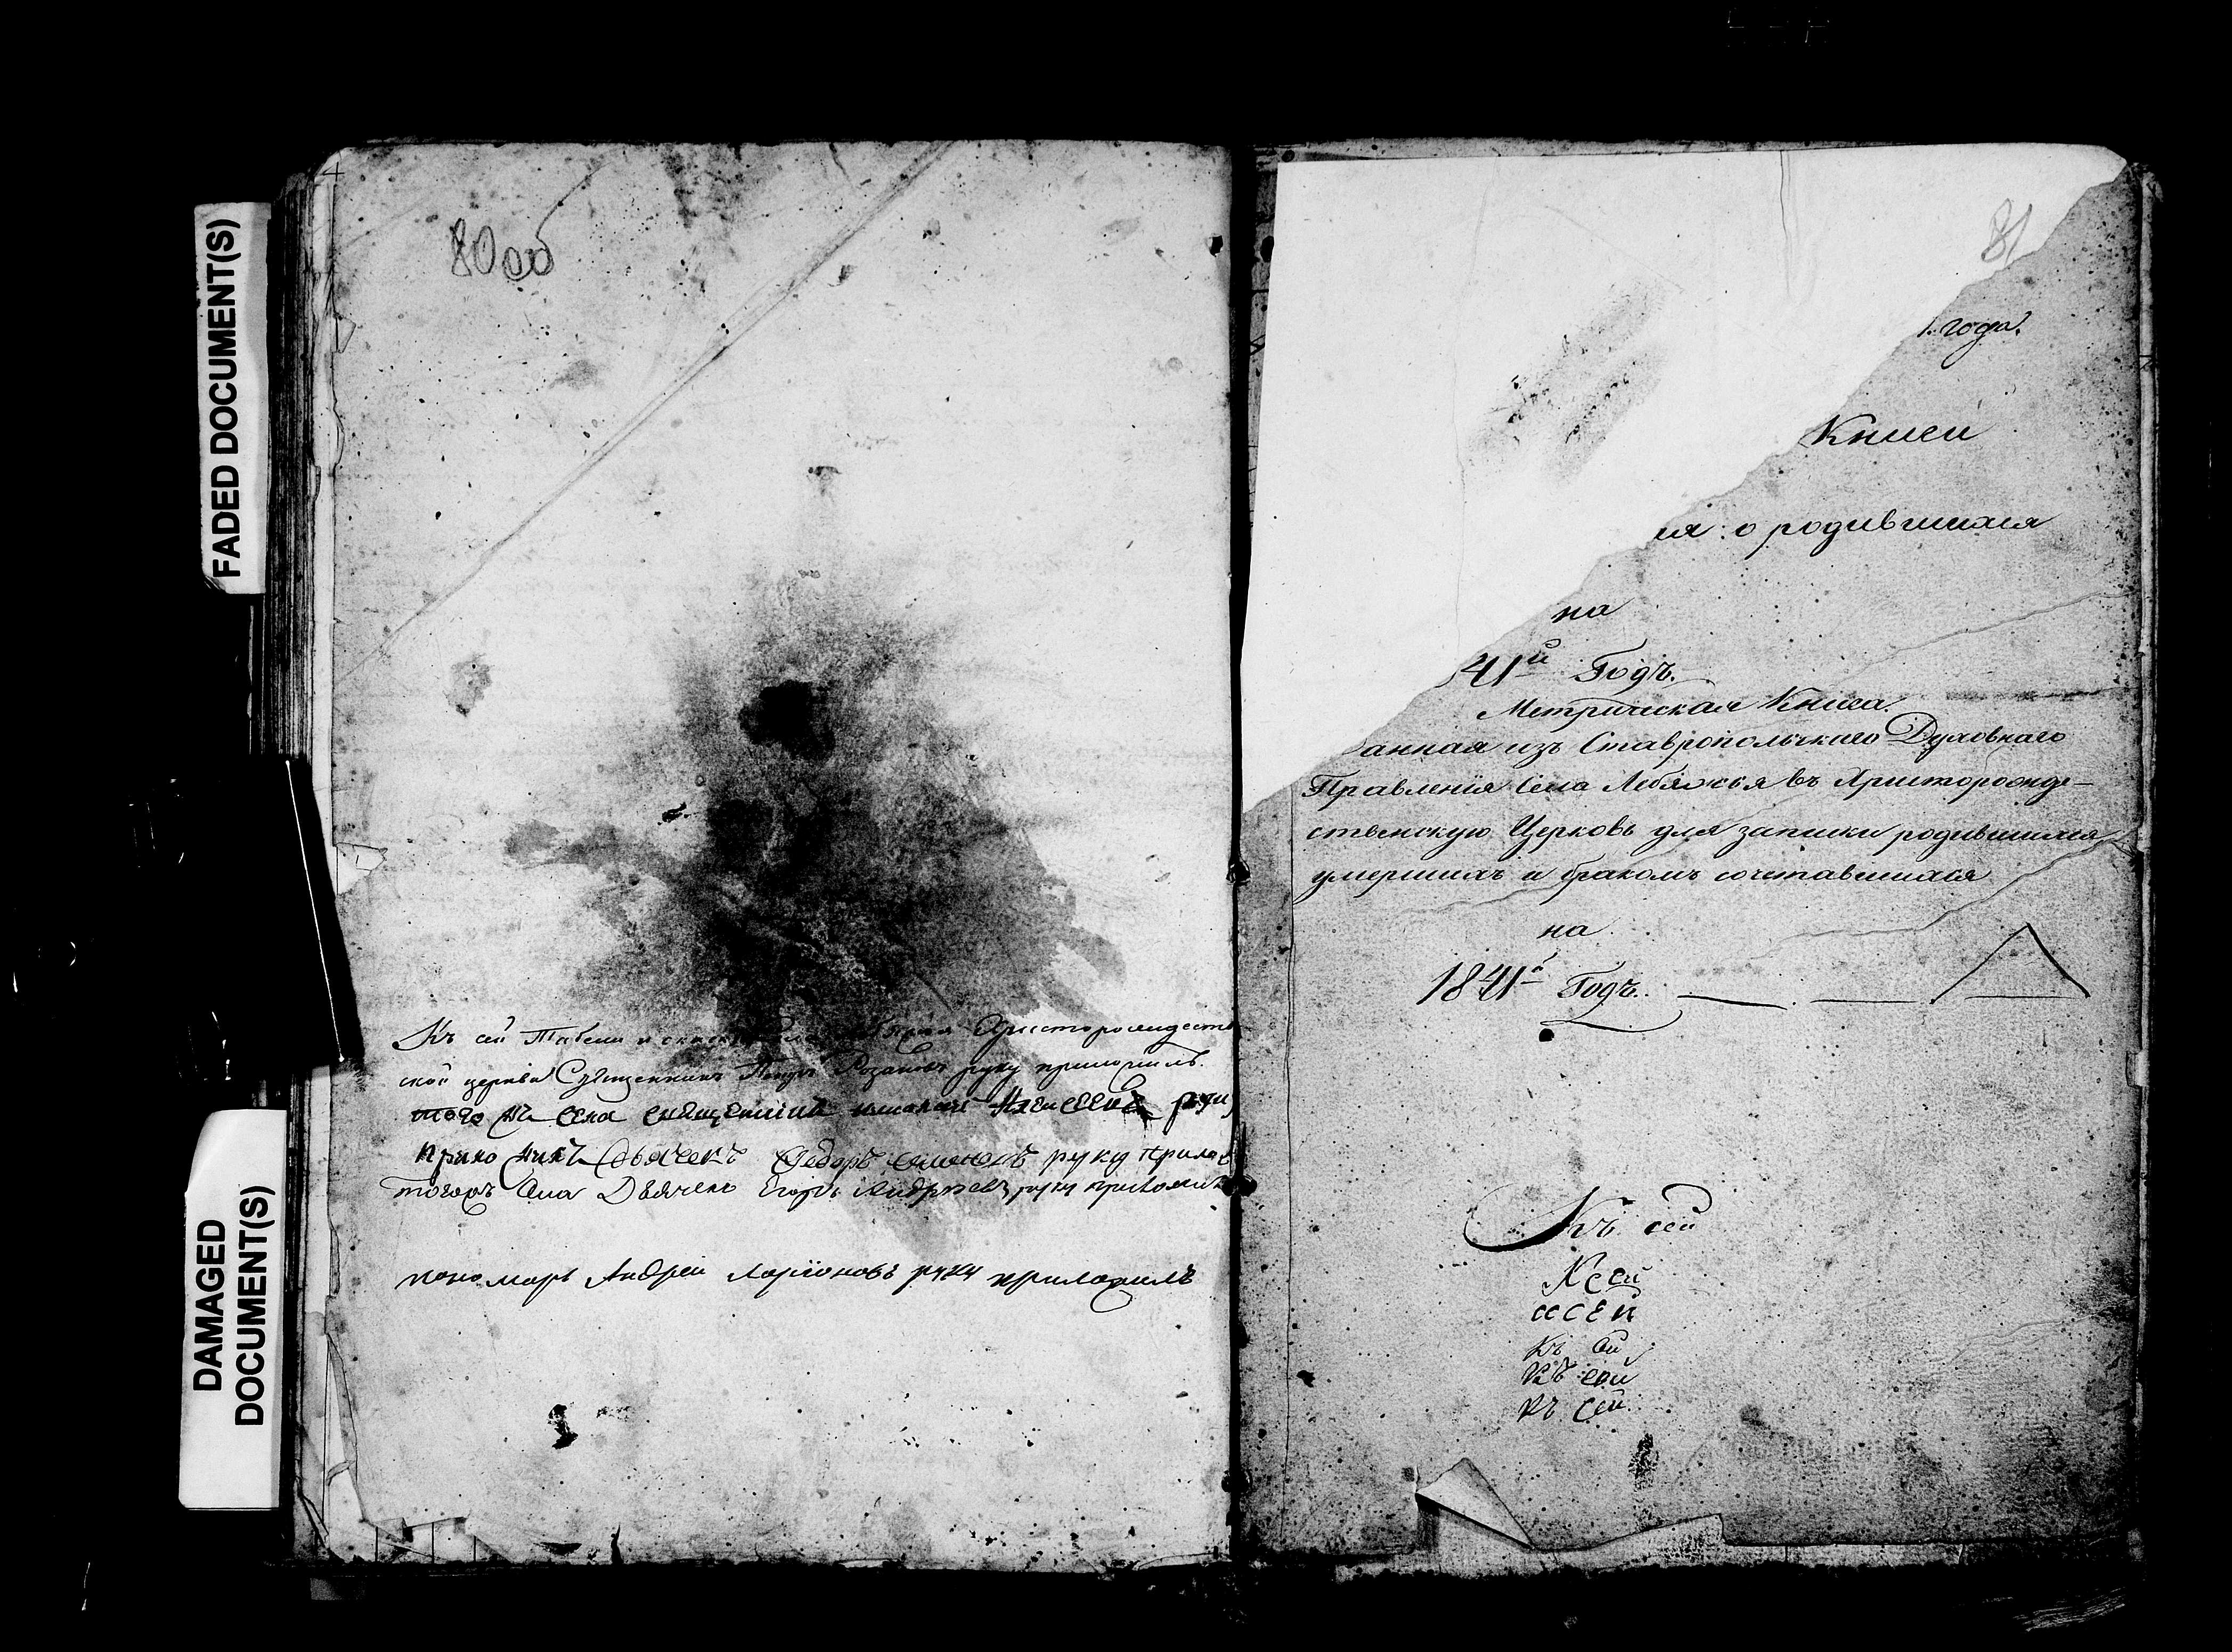 FADED DOCUMENT(S)
DAMAGED
DOCUMENT(S)
80 об
Къ сей Табели и Христорождеств
ской церкви Священникъ Петръ руку приложилъ.
того же села священникъ Алексеевъ руку
прило жилъ Дьячекъ Федоръ Семеновъ руку прилож
тогожъ села Дьячекъ Егоръ Андреевъ руку приложилъ
пономарь Андрей Ларионовъ руку приложилъ
81
1. года.
Книги
ия: о родившихся
на
41й Годъ.
Метрическая Книга.
анная изъ Ставропольскаго Духовнаго
Правленія Села Лебяжья въ Христорожде-
ственскую Церковь для записки родившихся
умершихъ и бракомъ сочетавшихся
на
1841й Годъ.
Къ сей
К сей
ксей
Къ сей
Къ сей
Къ сей